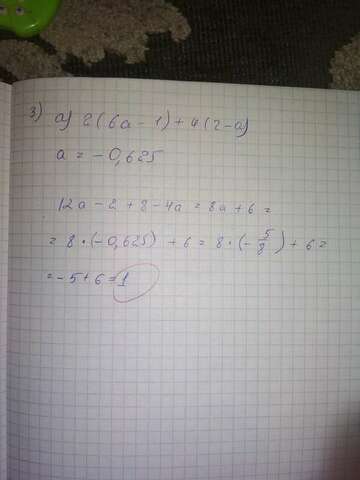 3) а) 2(6a-1)+4(2-a)
a = -0,625
12a-2+8-4a = 8a+6=
= 8·(-0,625)+6 = 8·(-5/8)+6=
=-5+6=1